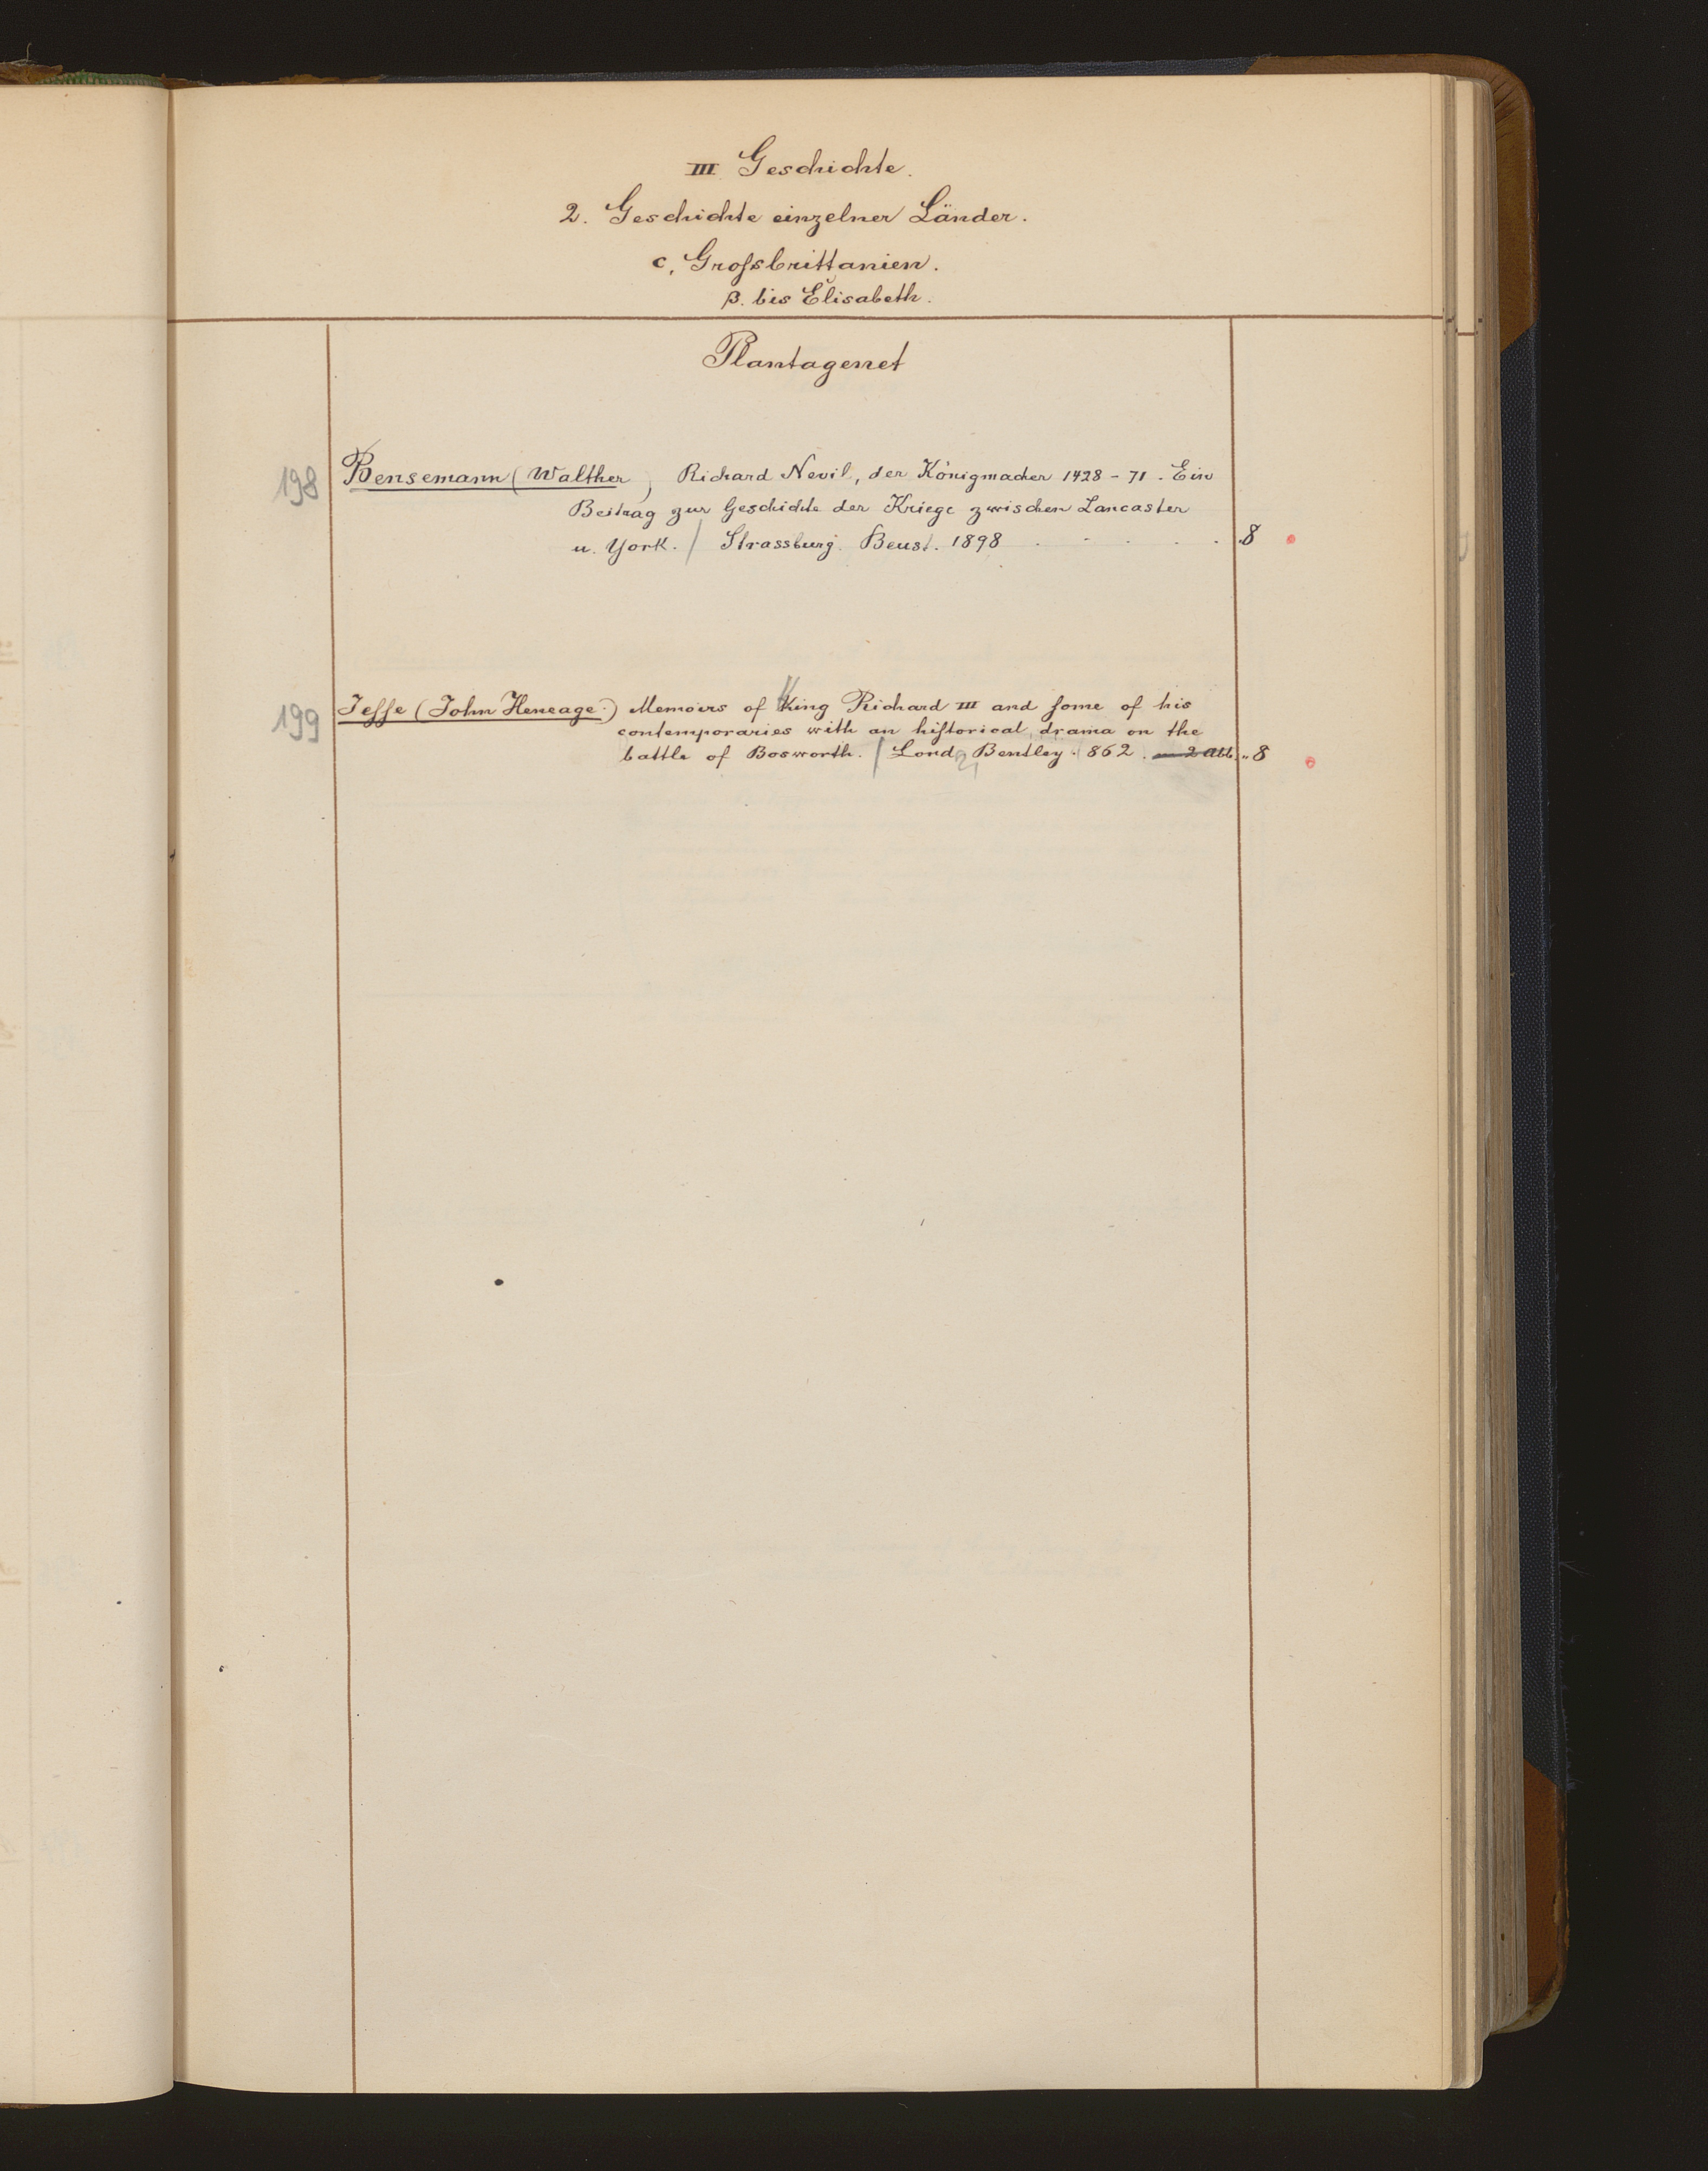 III Geschichte.
2. Geschichte einzelner Länder.
c, Grossbrittanien.
β. bis Elisabeth.
Plantagenet
198 Bensemann (Walther) Richard Nevil, der Königmacher 1428-71. Ein
Beitrag zur Geschichte der Kriege zwischen Lancaster
u. York. / Strassburg. Beust. 1898 . . . . . . 8
199 Jesse (John Heneage.) Memoirs of King Richard III and some of his
contemporaries with an historical drama on the
battle of Bosworth. / Lond Bentley. 862. 8